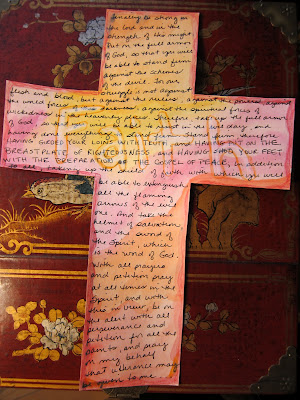 Finally be strong in
the Lord and in the
strength of His might
Put on the full armor
of God, so that you will
be able to stand firm
against the schemes
of the devil. For our
struggle is not against
flesh and blood, but against the rulers, against the powers, against
the world forces of this darkness, against the spiritual forces of
wickedness in the heavenly places. Therefore, take up the full armor
of God, so that you will be able to resist in the evil day, and
having done everything, to stand firm. Stand firm therefore,
HAVING GIRDED YOUR LOINS WITH TRUTH, and HAVING PUT ON THE
BREASTPLATE OF RIGHTEOUSNESS, and HAVING SHOD YOUR FEET
WITH THE PREPARATION OF THE GOSPEL OF PEACE; in addition
to all, taking up the shield of faith with which you will
be able to extinguish
all the flaming
arrows of the evil
one. And take the
helmet of salvation
and the sword of
the Spirit, which
is the word of God.
With all prayer
and petition pray
at all times in the
Spirit, and with
this in view, be on
the alert with all
perseverance and
petition for all the
saints, and pray
on my behalf
that utterance may
be given to me...